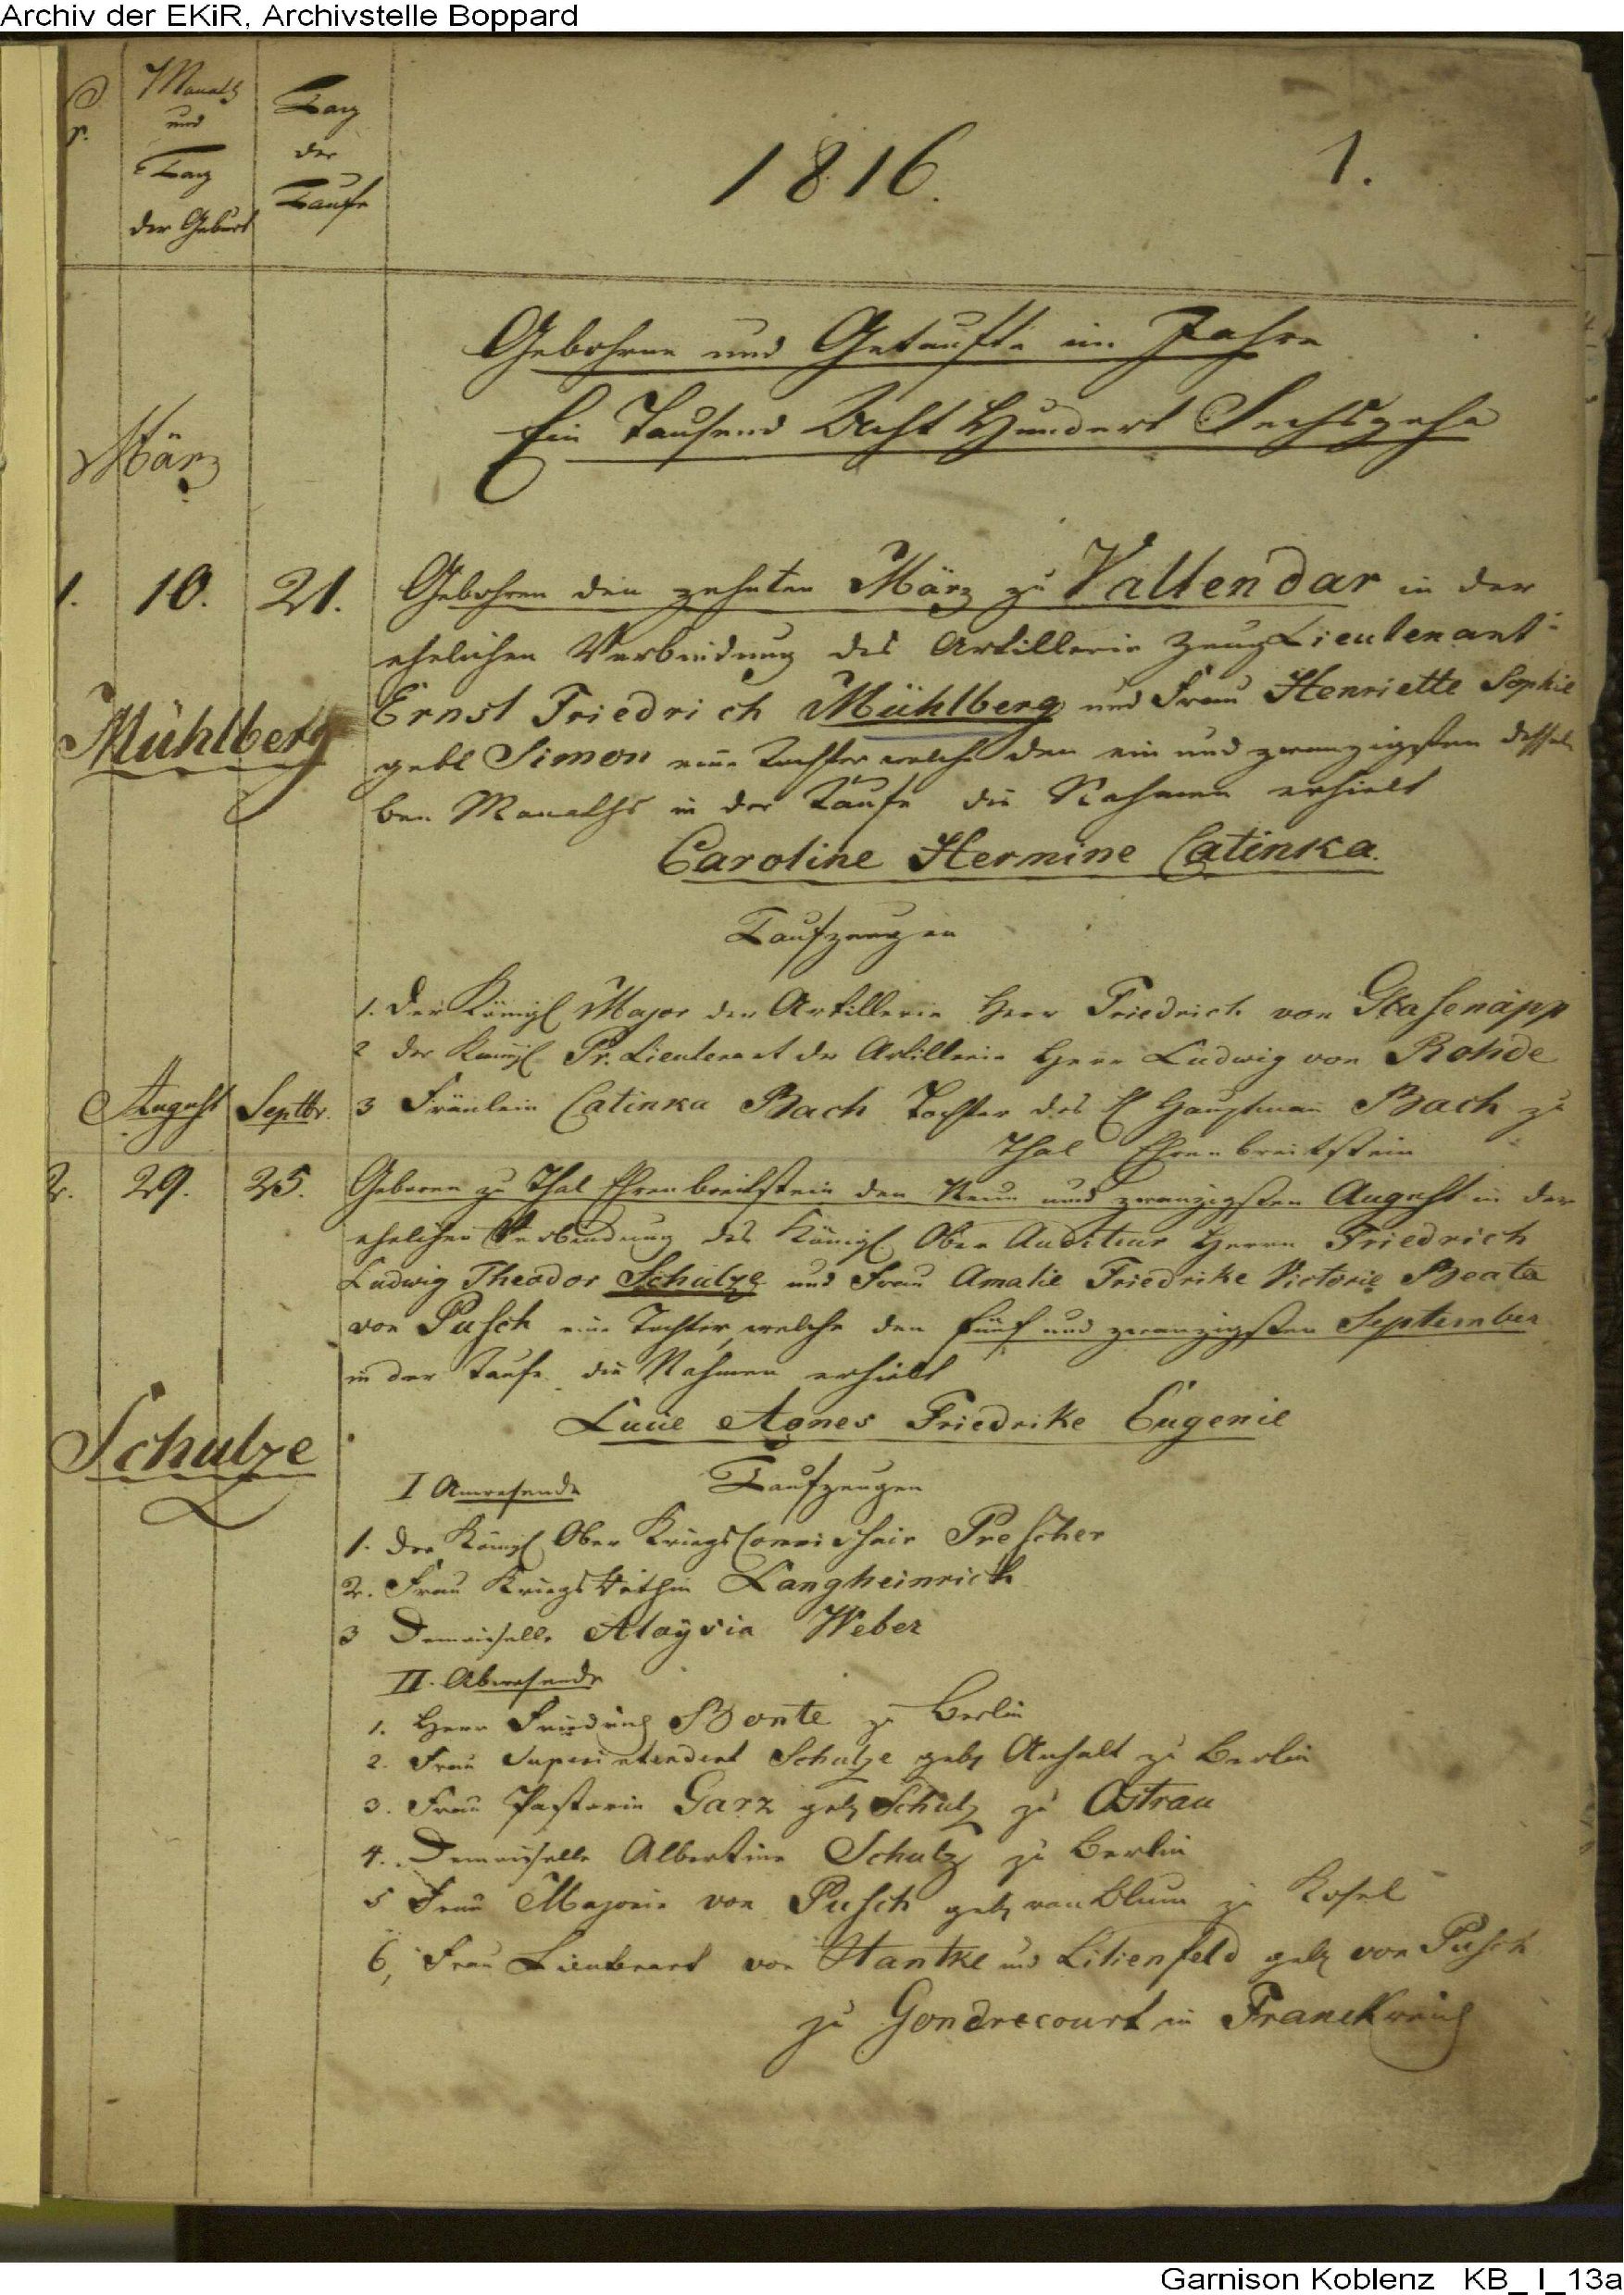 Archiv der EKiR, Archivstelle Boppard
Monath
und
Tag
der Geburt
Tag
der
Taufe
1816.
1.
Gebohrne und Getaufte im Jahre
Ein Tausend Acht Hundert Sechszehn
März
1. 10. 21. Gebohren den zehnten März zu Vallendar in der
ehelichen Verbindung des Artillerie Zeug Lieutenant
Ernst Friedrich Mühlberg und Frau Henriette Sophie
Mühlberg
geb Simon eine Tochter welche den ein und zwanzigsten dessel
ben Monaths in der Taufe die Nahmen erhielt
Caroline Hermine Catinka.
Taufzeugen
1. Der Königl Major der Artillerie Herr Friedrich von Glasenäpp
2 der Königl Pr. Lieutenant der Artillerie Herr Ludwig von Rohde
August Septbr. 3 Fräulein Catinka Bach Tochter des H Hauptman Bach zu
Thal Ehrenbreitstein
2. 29. 25. Geboren zu Thal Ehrenbreitstein den Neun und zwanzigsten August in der
ehelichen Verbindung des Königl Ober Auditeur Herrn Friedrich
Ludwig Theodor Schulze und Frau Amalie Friedrike Victorie Beata
von Pusch eine Tochter, welche den fünf und zwanzigsten September
in der Taufe die Nahmen erhielt
Lucie Agnes Friedrike Eugenie
Schulze
I Anwesende Taufzeugen
1. der Königl Ober Kriegs Commissair Prescher
2. Frau Kriegs Räthin Langheinrich
3 Demoiselle Aloysia Weber
II. Abwesende
1. Herr Friedrich Bonte zu Berlin
2. Frau Superintendent Schulze geb Anhalt zu Berlin
3. Frau Pastorin Garz geb Schulz zu Ostrau
4. Demoiselle Albertine Schulz zu Berlin
5 Frau Majorin von Pusch geb von Blum zu Kosel
6, Frau Lieutenant von Hantke und Lilienfeld geb von Pusch
zu Gondrecourt in Franckreich
Garnison Koblenz KB_I_13a